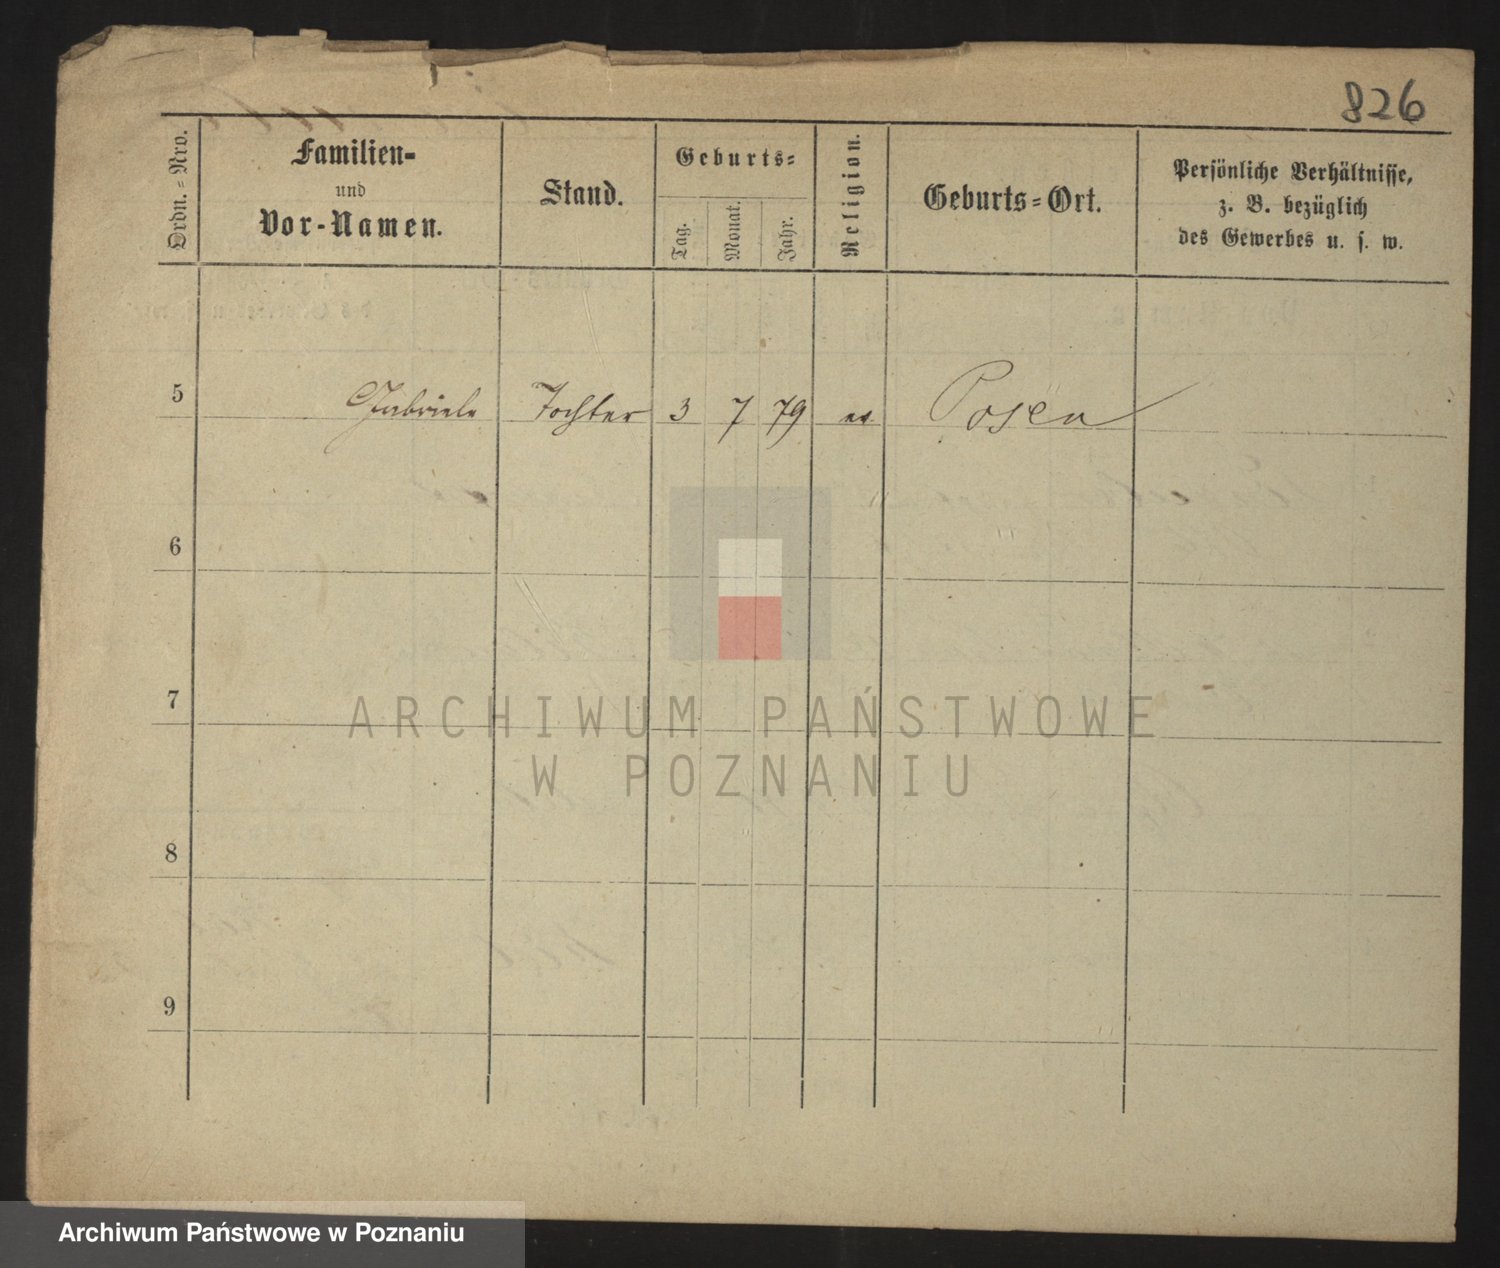 826
Ordn.=Nro.
Familien-
und
Vor-Namen.
Stand.
Geburts=
Tag.
Monat.
Jahr.
Religion.
Geburts=Ort.
Persönliche Verhältnisse,
z. B. bezüglich
des Gewerbes u. s. w.
5 Gabriele Tochter 3 7 79 ev. Posen
6
7
ARCHIWUM PAŃSTWOWE
W POZNANIU
8
9
Archiwum Państwowe w Poznaniu